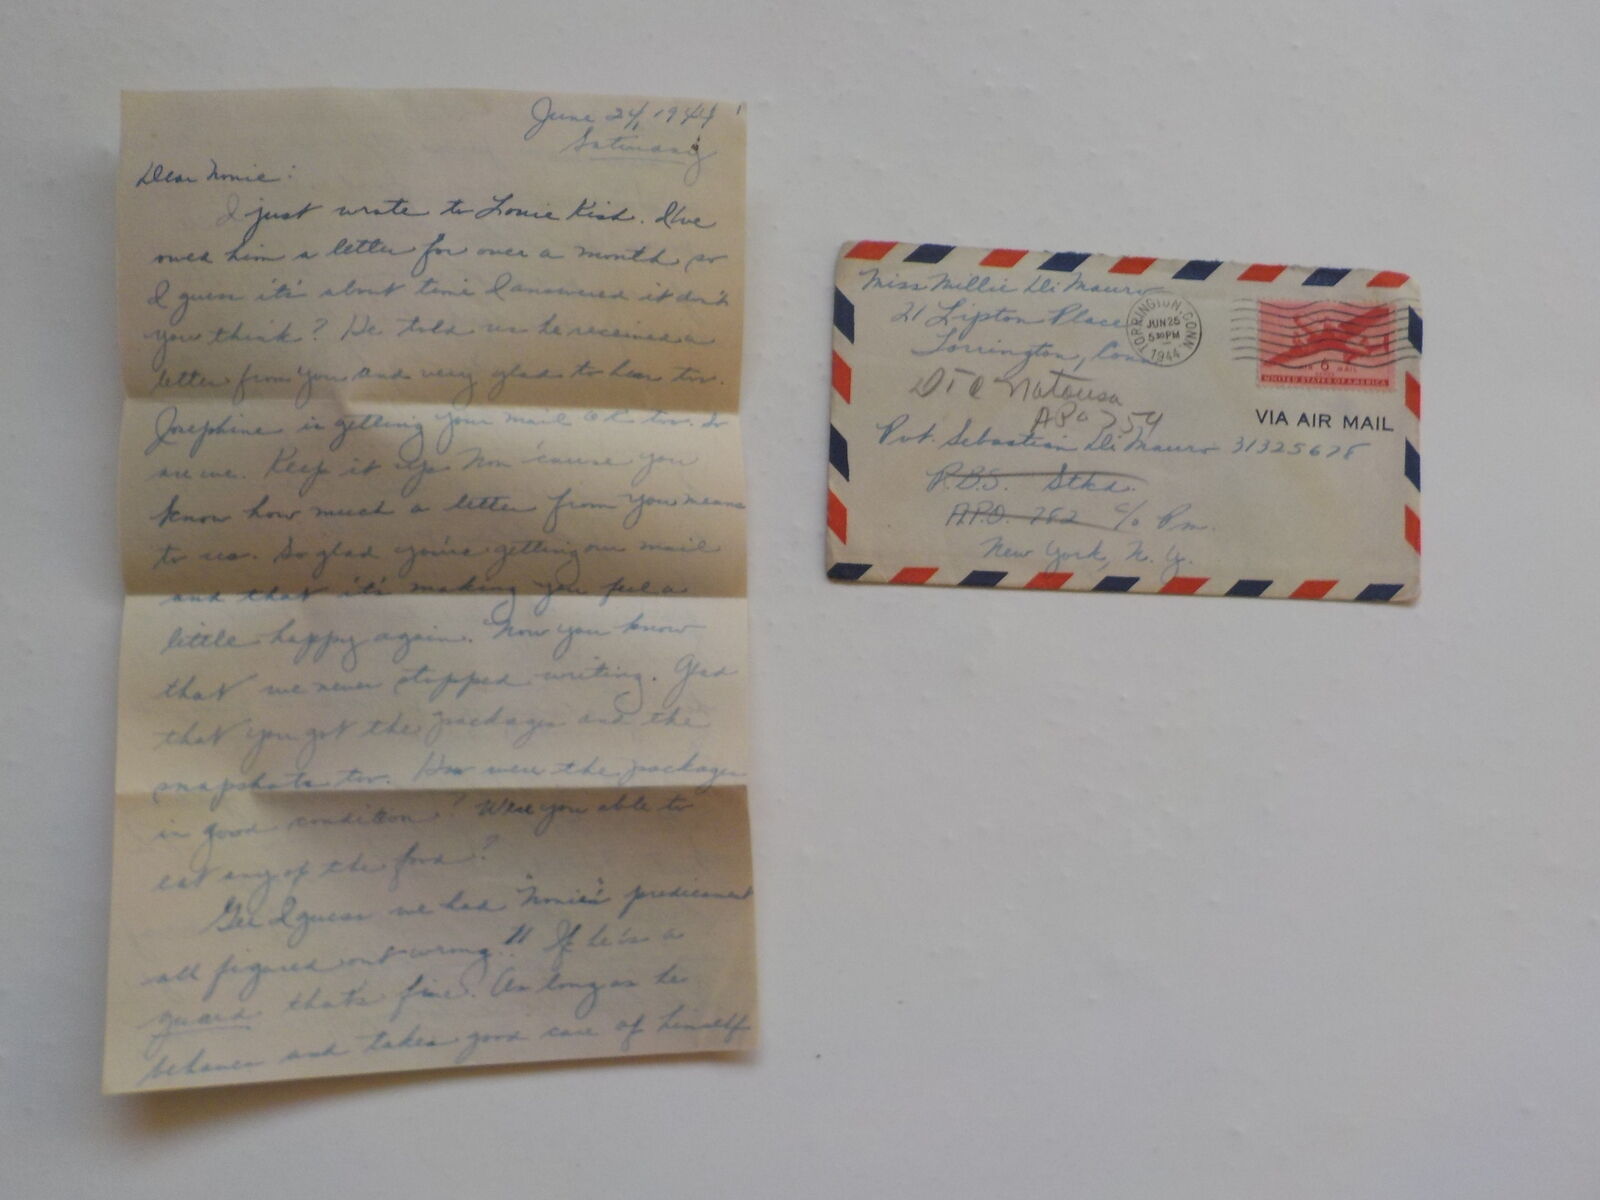 June 24, 1944
Saturday
Dear Nonie:
I just wrote to Louie Kish. I've
owed him a letter for over a month so
I guess it's about time I answered it don't
you think? He told us he received a
letter from you and very glad to hear too.
Josephine is getting your mail OK too. So
are we. Keep it up Non 'cause you
know how much a letter from you means
to us. So glad you're getting our mail
and that it's making you feel a
little happy again. Now you know
that we never stopped writing. Glad
that you got the packages and the
snapshots too. How were the packages
in good condition? Were you able to
eat any of the food?
Gee I guess we had "Nonie's" predicament
all figured out wrong!! If he's a
guard that's fine. As long as he
behaves and takes good care of himself
Miss Millie Di Mauro
21 Lipton Place
Torrington, Conn
TORRINGTON, CONN.
JUN 25
5 30 PM
1944
AIR 6 MAIL
UNITED STATES OF AMERICA
VIA AIR MAIL
DTC Matousa
APO 754
Pvt. Sebastian Di Mauro 31325678
P.B.S. Stkd.
A.P.O. 782 c/o Pm.
New York, N.Y.